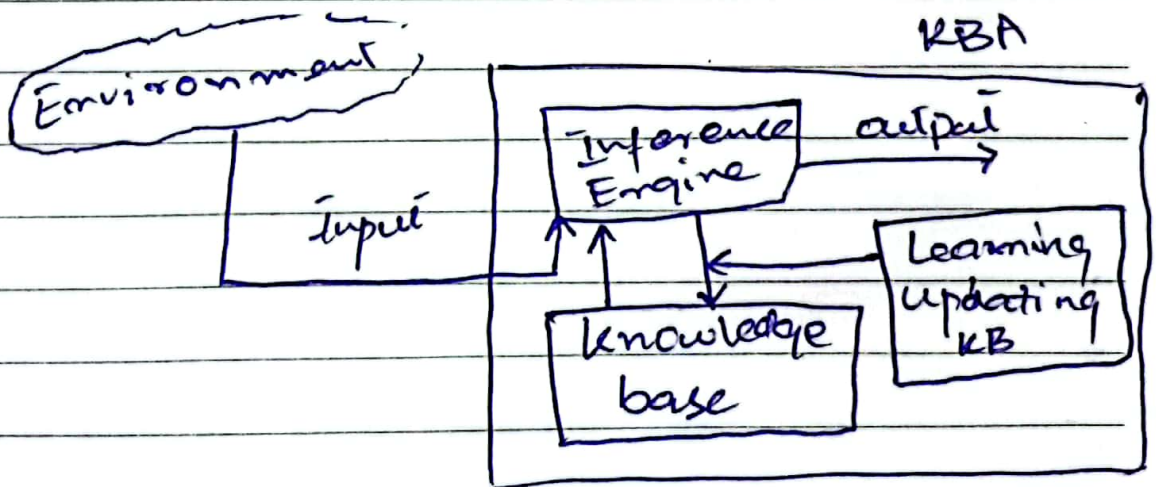 KBA
Environment
Inference
Engine
output
input
Learning
updating
KB
knowledge
base